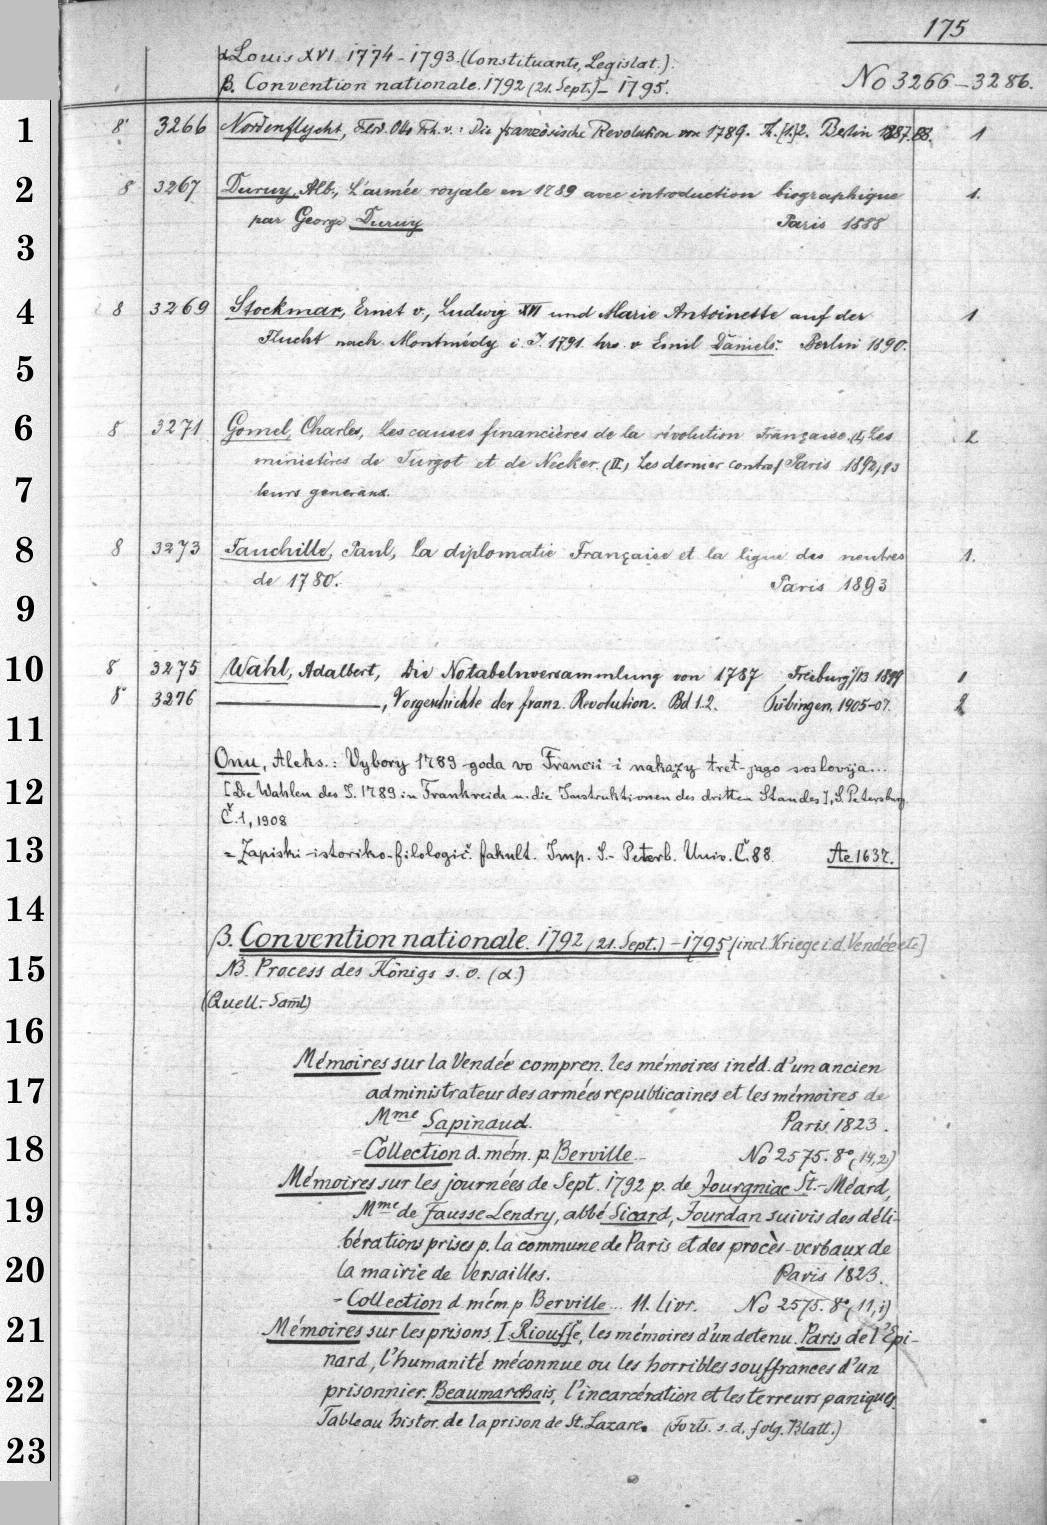 175
α Louis XVI 1774-1793. (Constituante, Legislat.).
β. Convention nationale. 1792 (21. Sept.) - 1795.
No 3266-3286.
1 8° 3266 Nordenflycht, Ferd. Otto Frh. v.: Die französische Revolution von 1789. Th. [1.]2. Berlin 1887.88. 1
2 8 3267 Duruy, Alb., L'armée royale en 1789 avec introduction biographique 1.
par George Duruy Paris 1888
3
4 8 3269 Stockmar, Ernst v., Ludwig XVI und Marie Antoinette auf der 1
Flucht nach Montmédy i. J. 1791. hrs. v Emil Daniels. Berlin 1890.
5
6 8 3271 Gomel, Charles, Les causes financières de la révolution Française. (I) Les 2
ministères de Turgot et de Necker. (II) Les dernier contrôl Paris 1892,93
7 leurs generaux.
8 8 3273 Fauchille, Paul, La diplomatie Française et la ligue des neutres 1.
de 1780. Paris 1893
9
10 8 3275 Wahl, Adalbert, Die Notabelnversammlung von 1787 Freiburg i/B 1899 1
8° 3276 ———, Vorgeschichte der franz. Revolution. Bd 1.2. Tübingen, 1905-07. 2
11
Onu, Aleks.: Vybory 1789 goda vo Francii i nakazy tret-jago soslovija...
12 [Die Wahlen des J. 1789 in Frankreich u. die Instruktionen des dritten Standes], S. Petersburg
Č. 1, 1908
13 = Zapiski istoriko-filologič. fakult. Imp. S.-Peterb. Univ. Č. 88 Ae 1637.
14
β. Convention nationale. 1792 (21. Sept.) - 1795 [incl. Kriege i. d. Vendée etc]
15 NB. Process des Königs s. o. (α.)
(Quell.-Saml)
16
Mémoires sur la Vendée compren. les mémoires inéd. d'un ancien
17 administrateur des armées republicaines et les mémoires de
Mme Sapinaud. Paris 1823.
18 = Collection d. mém. p. Berville - No 2575. 8° (14,2)
Mémoires sur les journées de Sept. 1792 p. de Jourgniac St.-Méard,
19 Mme de Fausse Lendry, abbé Sicard, Jourdan suivis des déli-
bérations prises p. la commune de Paris et des procès-verbaux de
20 la mairie de Versailles. Paris 1823.
- Collection d. mém. p Berville... 11. livr. No 2575. 8° (11,1)
21 Mémoires sur les prisons. I. Riouffe, les mémoires d'un detenu. Paris de l'Epi-
nard, l'humanité méconnue ou les horribles souffrances d'un
22 prisonnier. Beaumarchais, l'incarcération et les terreurs paniques.
Tableau histor. de la prison de St. Lazare. (Forts. s. d. folg. Blatt.)
23